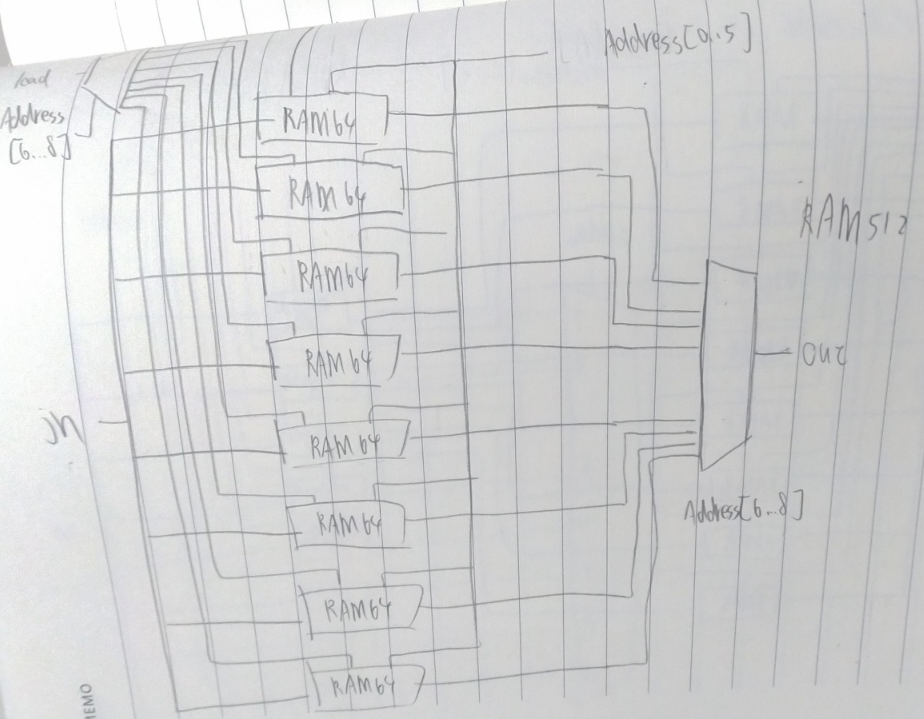 load
Address
[6...8]
Address[0..5]
RAM64
RAM64
RAM64
RAM64
RAM64
RAM64
RAM64
RAM64
RAM512
in
out
Address[6...8]
MEMO